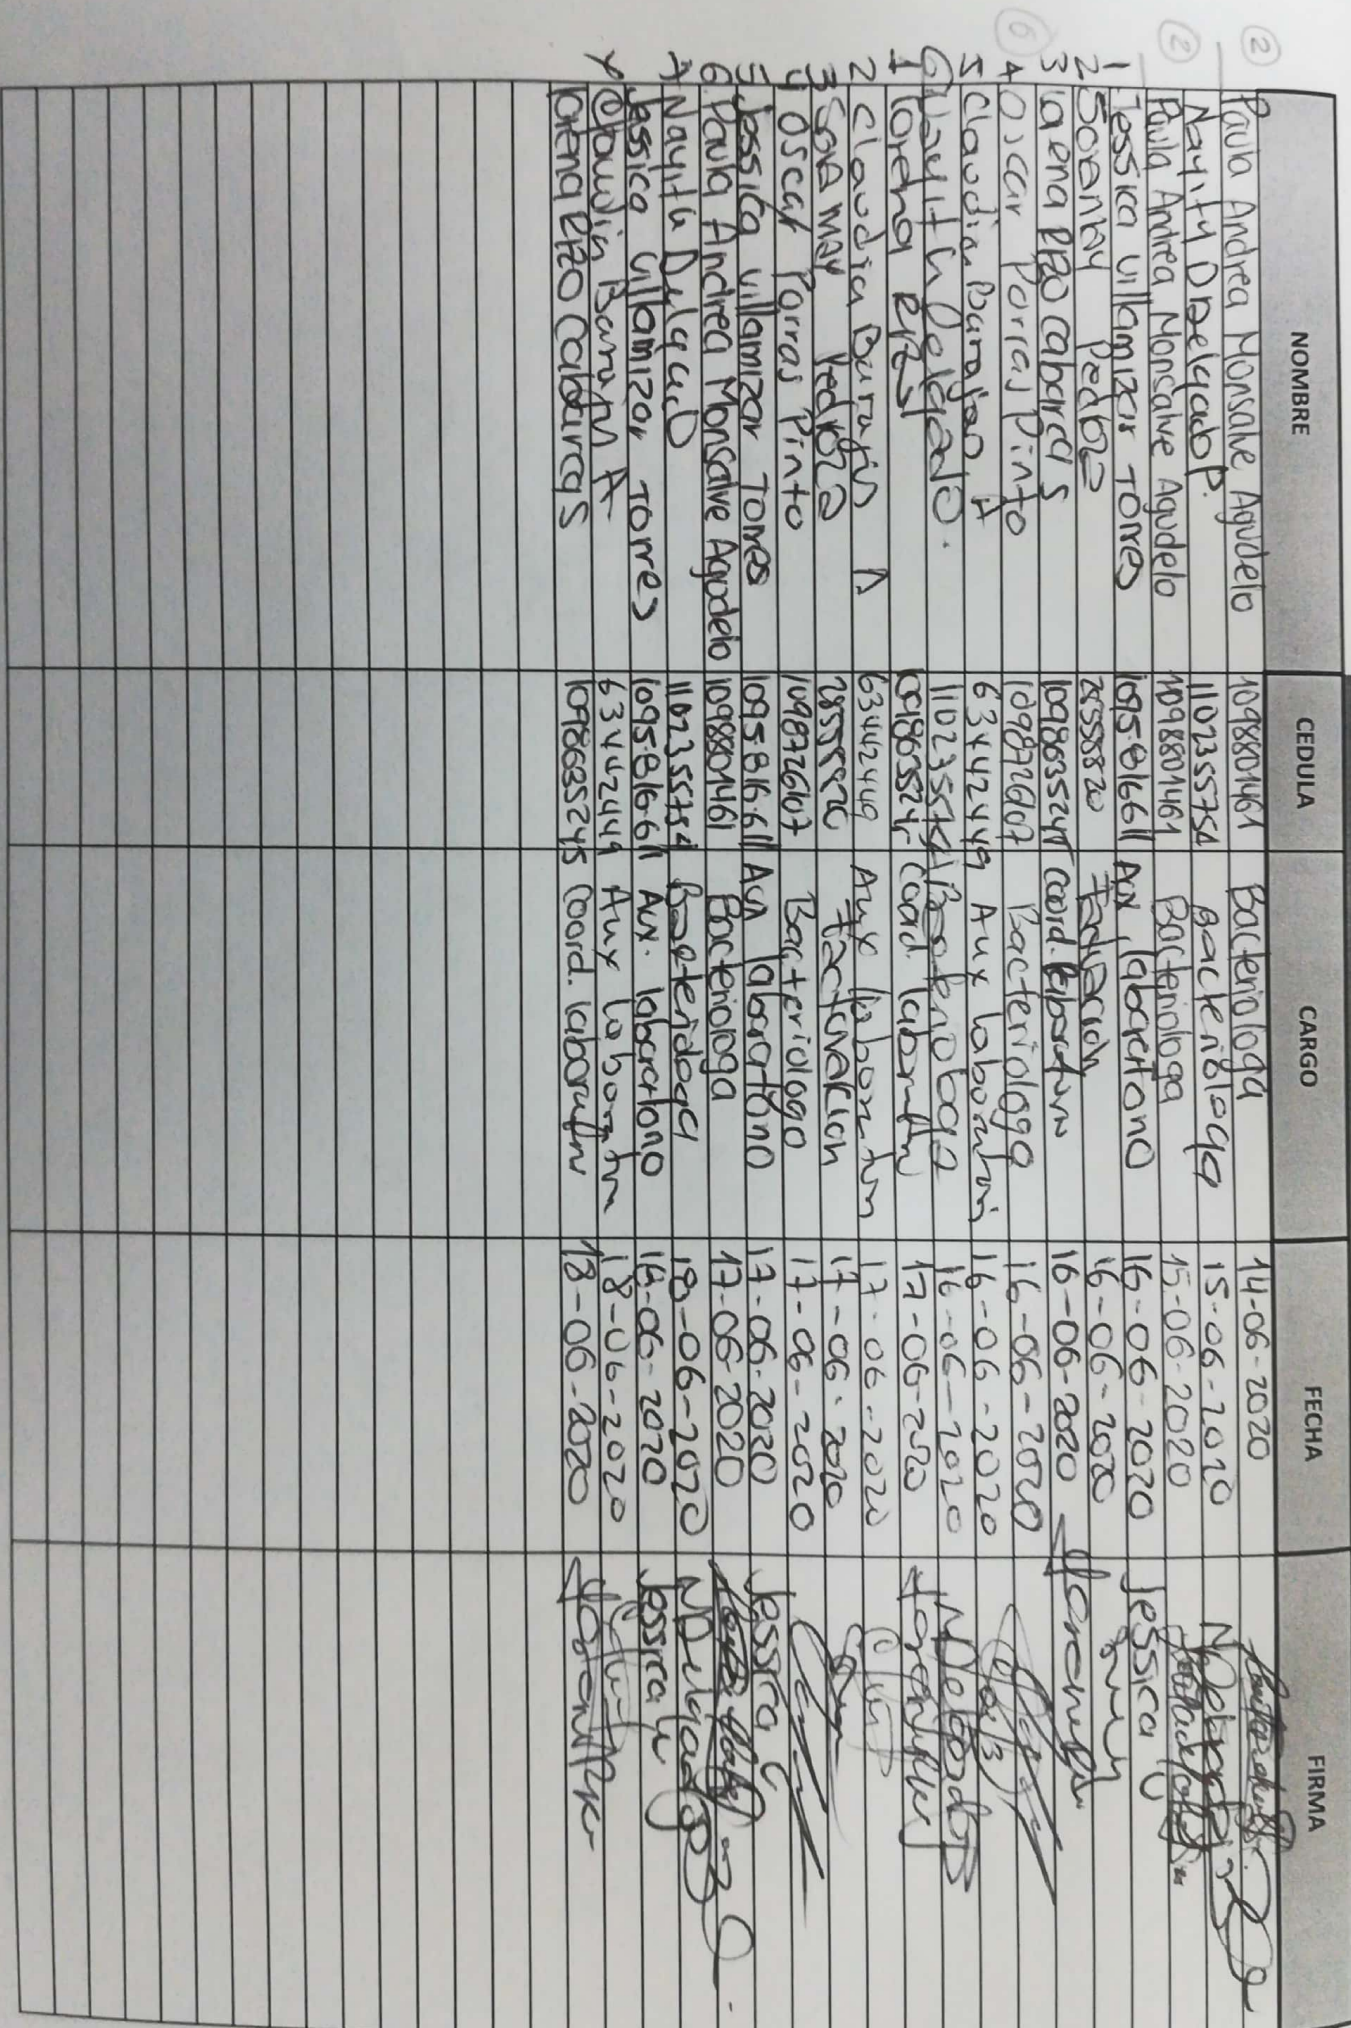 NOMBRE CEDULA CARGO FECHA FIRMA
2 Paula Andrea Monsalve Agudelo 1098801461 Bacteriologa 14-06-2020
Nayith D Delgado P. 1102355754 Bacteriologa 15-06-2020 NDelgado
2 Paula Andrea Monsalve Agudelo 1098801461 Bacteriologa 15-06-2020
1 Jessica Villamizar Torres 1095816611 Aux laboratorio 16-06-2020 Jessica
2 Soranlay Pedroza 28555820 16-06-2020
3 Lorena Rizo Cabarcas 1098635245 Coord. laboratorio 16-06-2020
6 4 Oscar Porras Pinto 1098726107 Bacteriologo 16-06-2020
5 Claudia Barajas A 63442449 Aux laboratorio 16-06-2020
6 Nayith Delgado. 1102355754 Bacteriologa 16-06-2020 NDelgado
1 Lorena Coord laboratorio 17-06-2020
2 Claudia Barajas A 63442449 Aux laboratorio 17-06-2020
3 Pedroza Facturacion 17-06-2020
4 Oscar Porras Pinto 1098726107 Bacteriologo 17-06-2020
5 Jessica Villamizar Torres 1095.816.611 Aux laboratorio 17-06-2020 Jessica
6. Paula Andrea Monsalve Agudelo 1098801461 Bacteriologa 17-06-2020
Nayith Delgado 1102355754 Bacteriologa 18-06-2020 NDelgado
Jessica Villamizar Torres 1095.816.611 Aux. laboratorio 18-06-2020 Jessica
Claudia Barajas A 63442449 Aux laboratorio 18-06-2020
Lorena Rizo Cabarcas 1098635245 Coord. laboratorio 18-06-2020